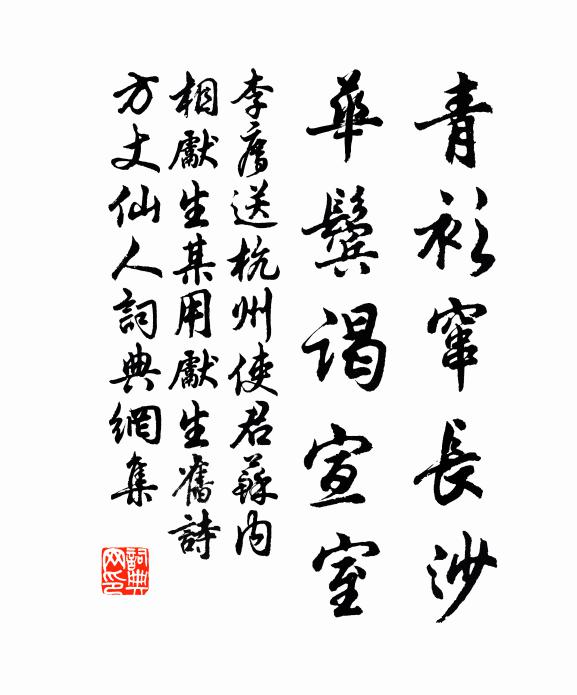 青衫竄長沙
華鬢謁宣室
李廌送杭州使君蘇內
相獻生某用獻生舊詩
方丈仙人詞典網集
詞典
网印